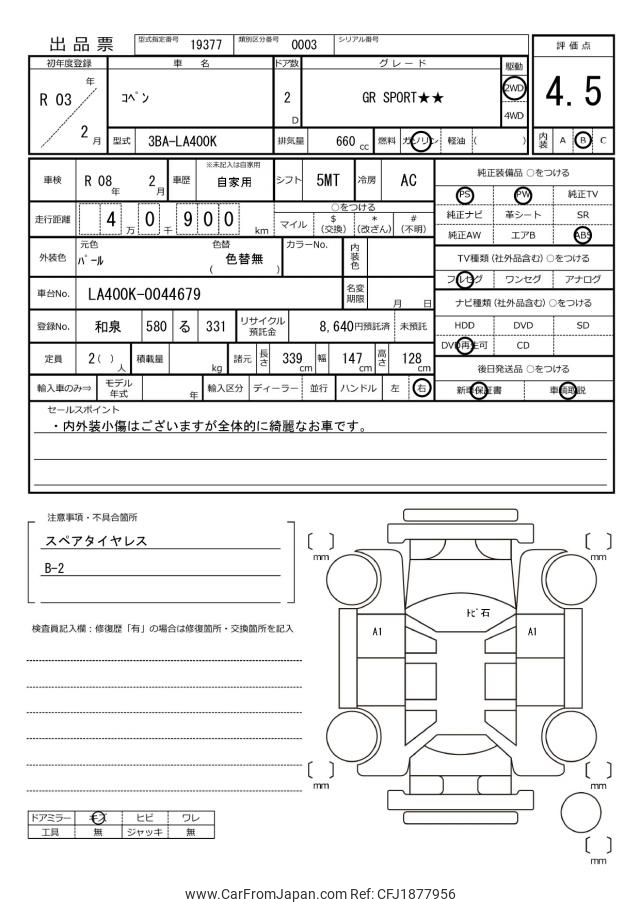 出品票 型式指定番号 19377 類別区分番号 0003 シリアル番号
評価点
4.5
初年度登録 車名 ドア数 グレード 駆動
R 03 年 2 月 コペン 2 D GR SPORT★★ 2WD 4WD
型式 3BA-LA400K 排気量 660 cc 燃料 ガソリン 軽油 ( ) 内装 A B C
車検 R 08 年 2 月 車歴 ※未記入は自家用 自家用 シフト 5MT 冷房 AC
走行距離 4 万 0 千 9 0 0 km ○をつける マイル $ (交換) * (改ざん) # (不明)
外装色 元色 パール 色替 ( 色替無 ) カラーNo. 内装色
車台No. LA400K-0044679 名変期限 月 日
登録No. 和泉 580 る 331 リサイクル預託金 8,640円預託済 未預託
定員 2( ) 人 積載量 kg 諸元 長さ 339 cm 幅 147 cm 高さ 128 cm
輸入車のみ⇒ モデル年式 年 輸入区分 ディーラー 並行 ハンドル 左 右
純正装備品 ○をつける
PS PW 純正TV
純正ナビ 革シート SR
純正AW エアB ABS
TV種類 (社外品含む) ○をつける
フルセグ ワンセグ アナログ
ナビ種類 (社外品含む) ○をつける
HDD DVD SD
DVD再生可 CD
後日発送品 ○をつける
新車保証書 車輌取説
セールスポイント
・内外装小傷はございますが全体的に綺麗なお車です。
注意事項・不具合箇所
スペアタイヤレス
B-2
検査員記入欄：修復歴「有」の場合は修復箇所・交換箇所を記入
ドアミラー キズ ヒビ ワレ
工具 無 ジャッキ 無
mm mm
トビ石
A1 A1
mm mm
mm
www.CarFromJapan.com Ref: CFJ1877956